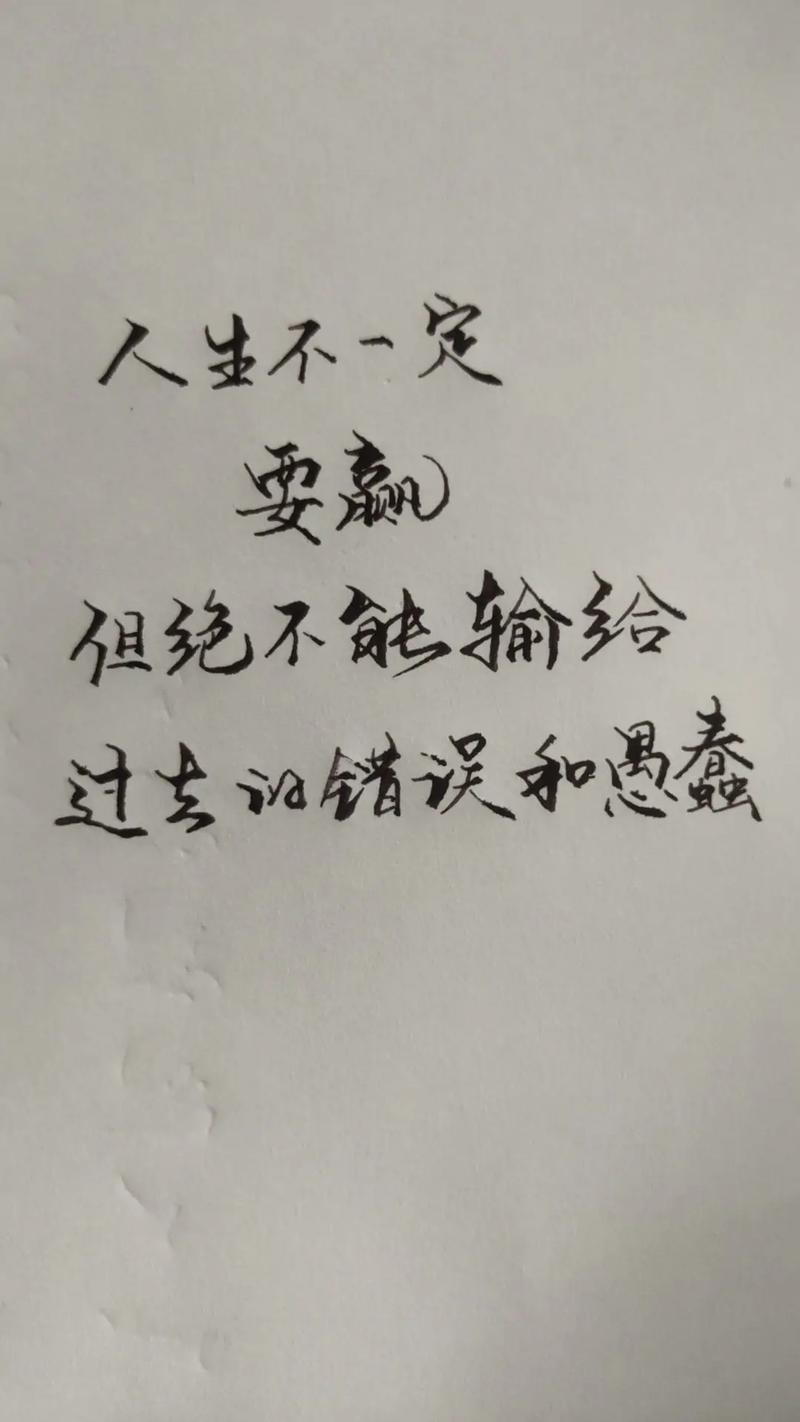 人生不一定
要赢
但绝不能输给
过去的错误和愚蠢